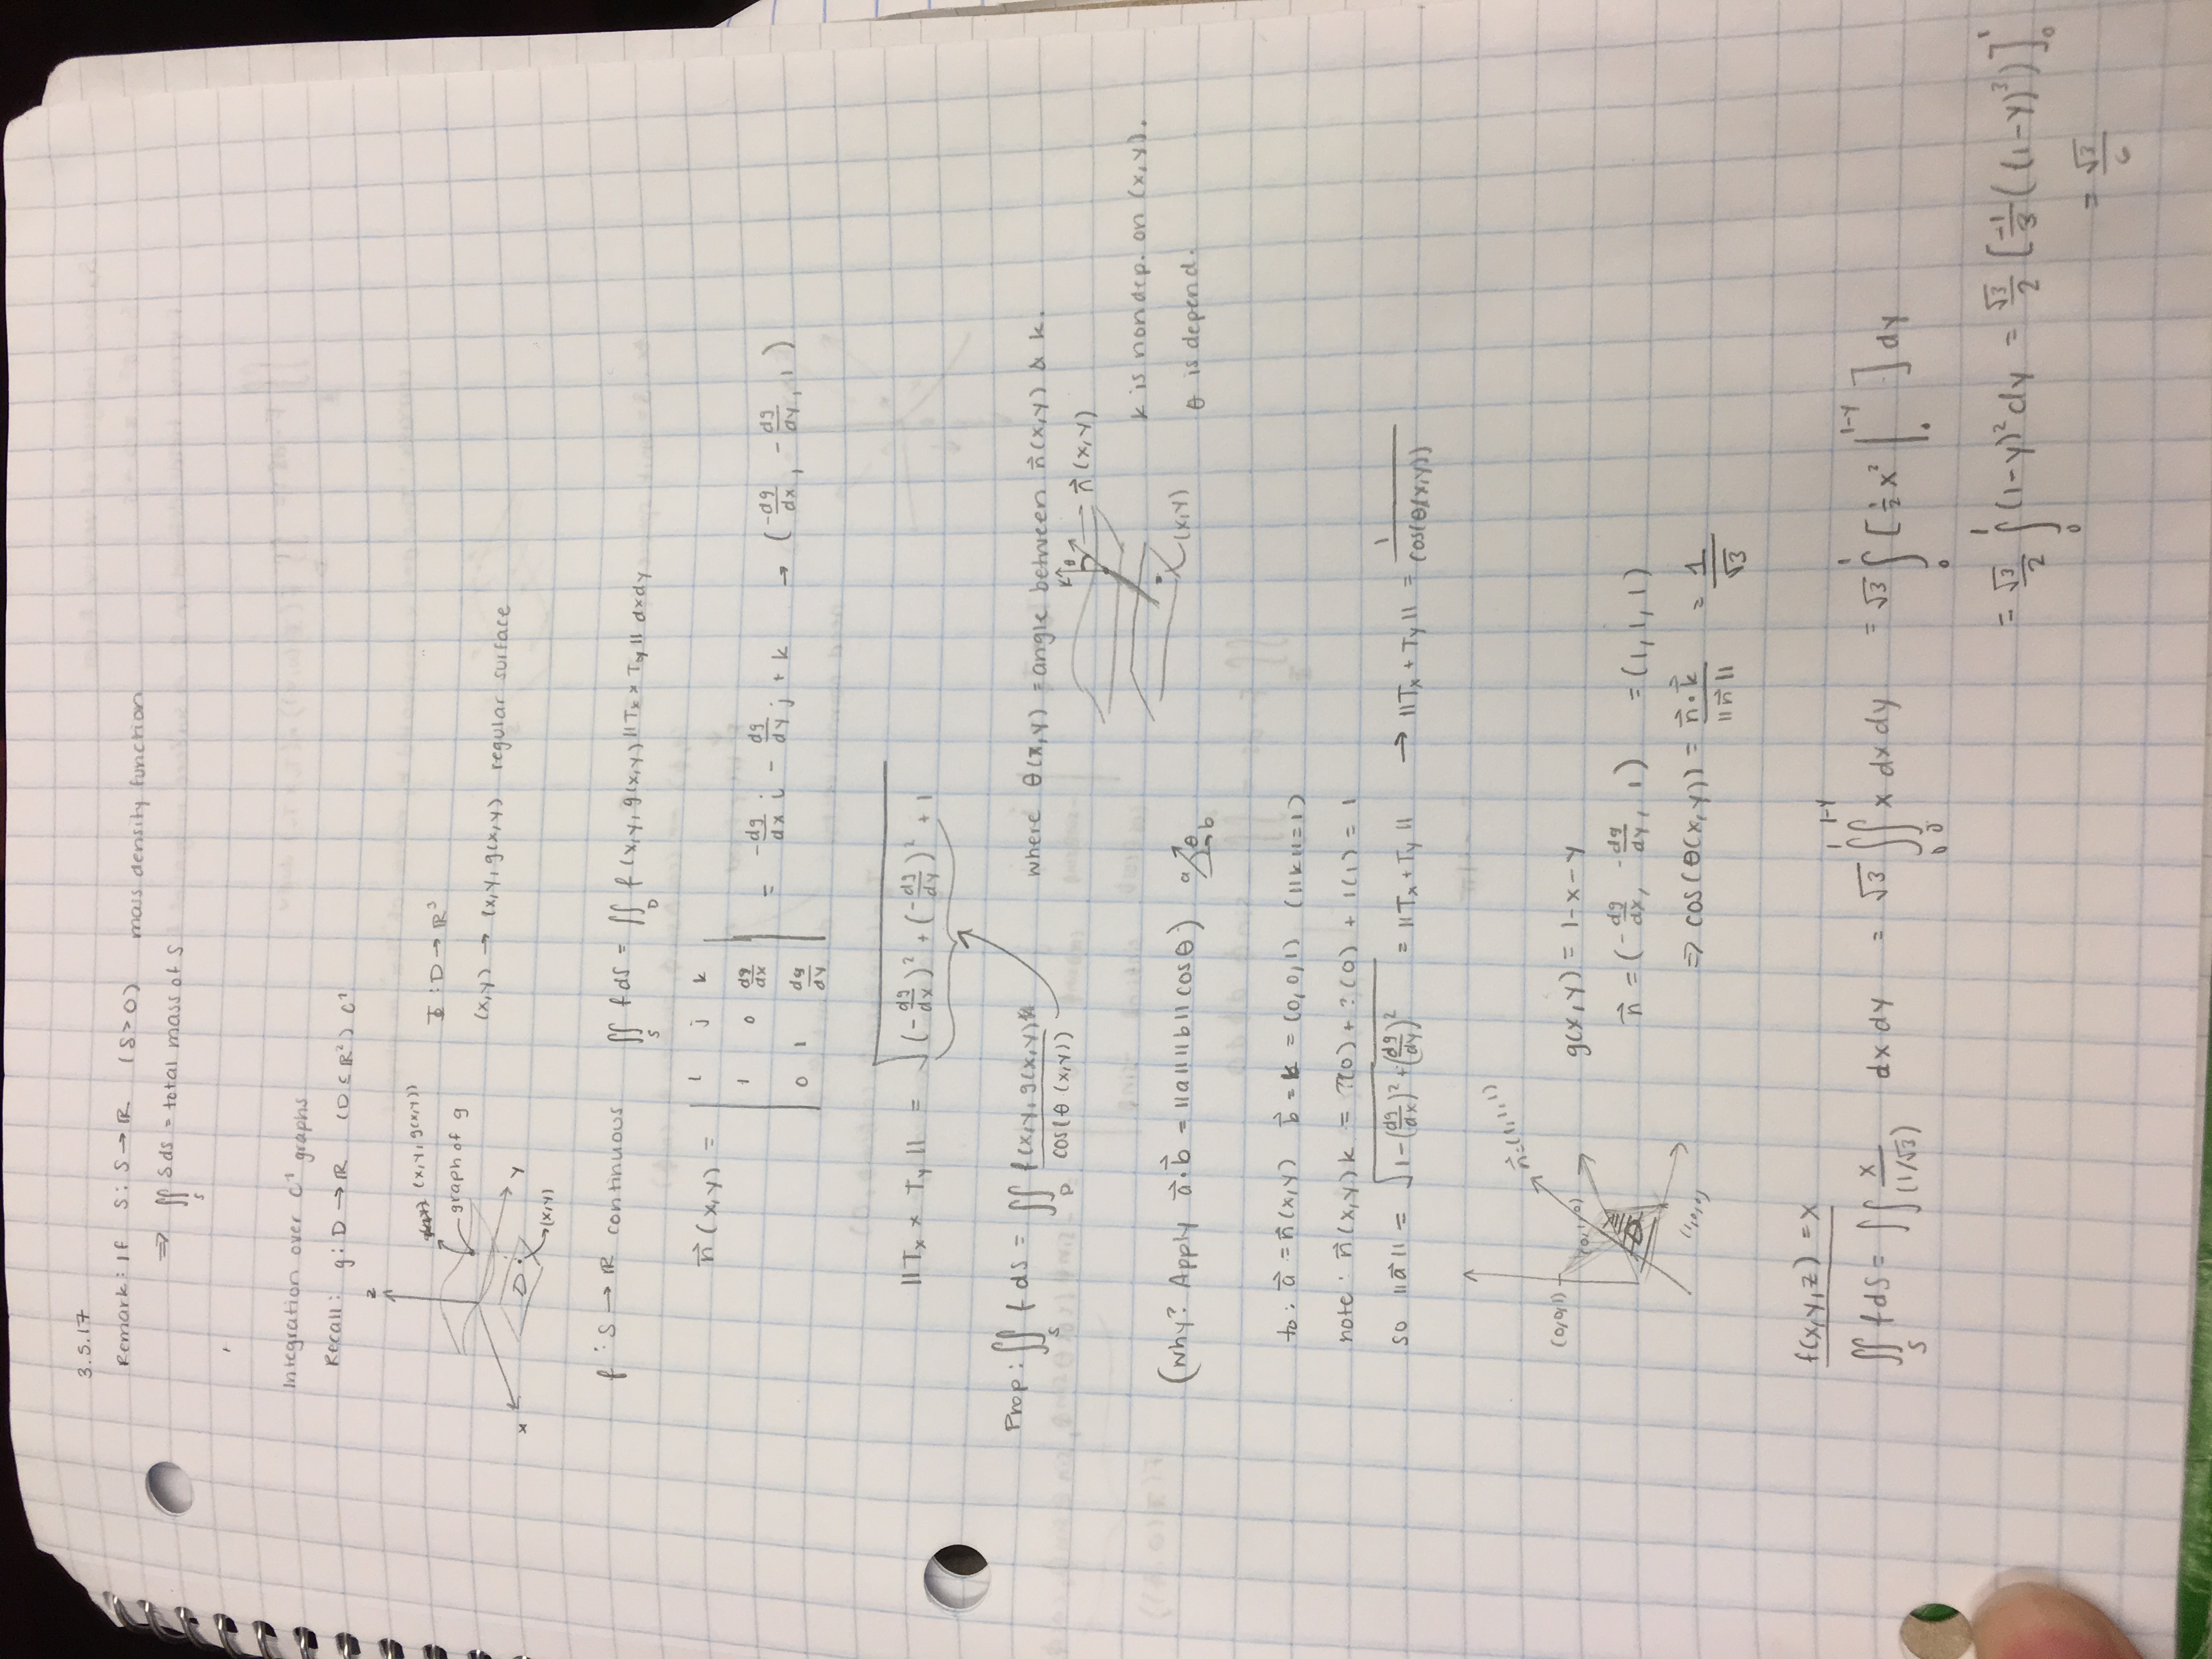 3.5.17
Remark: If δ: S → ℝ (δ > 0) mass density function
⇒ ∬_S δ ds = total mass of S
Integration over C¹ graphs
Recall: g: D → ℝ (D ⊆ ℝ²) C¹
z
(x,y,g(x,y))
graph of g
x
y
D
(x,y)
Φ: D → ℝ³
(x,y) → (x,y,g(x,y)) regular surface
f: S → ℝ continuous ∬_S f dS = ∬_D f(x,y,g(x,y)) ||Tx × Ty|| dxdy
n⃗(x,y) = | i j k |
| 1 0 dg/dx |
| 0 1 dg/dy | = -dg/dx i - dg/dy j + k → (-dg/dx, -dg/dy, 1)
||Tx × Ty|| = √((-dg/dx)² + (-dg/dy)² + 1)
Prop: ∬_S f dS = ∬_D f(x,y,g(x,y)) / cos(θ(x,y)) where θ(x,y) = angle between n⃗(x,y) & k.
k θ n⃗(x,y)
(x,y)
k is nondep. on (x,y).
θ is depend.
(Why? Apply a⃗·b⃗ = ||a|| ||b|| cosθ) a θ b
to: a⃗ = n⃗(x,y) b⃗ = k = (0,0,1) (||k||=1)
note: n⃗(x,y) k = ?(0) + ?(0) + 1(1) = 1
so ||a⃗|| = √(1-(dg/dx)² + (dg/dy)²) = ||Tx + Ty|| → ||Tx + Ty|| = 1/cos(θ(x,y))
n⃗=(1,1,1)
(0,0,1)
(0,1,0)
D
(1,0,0)
g(x,y) = 1-x-y
n⃗ = (-dg/dx, -dg/dy, 1) = (1,1,1)
⇒ cos(θ(x,y)) = n⃗·k⃗ / ||n⃗|| = 1/√3
f(x,y,z) = x
∬_S f dS = ∬ x/(1/√3) dx dy = √3 ∫₀¹ ∫₀^(1-y) x dx dy = √3 ∫₀¹ [½x² |₀^(1-y)] dy
= √3/2 ∫₀¹ (1-y)² dy = √3/2 [-1/3 ((1-y)³)]₀¹
= √3/6